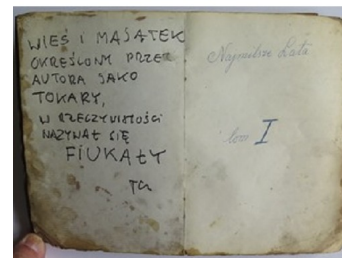 WIEŚ I MAJĄTEK
OKREŚLONY PRZEZ
AUTORA JAKO
TOKARY,
W RZECZYWISTOŚCI
NAZYWAŁ SIĘ
FIUKAŁY
TG
Najmilsze Lata
tom I